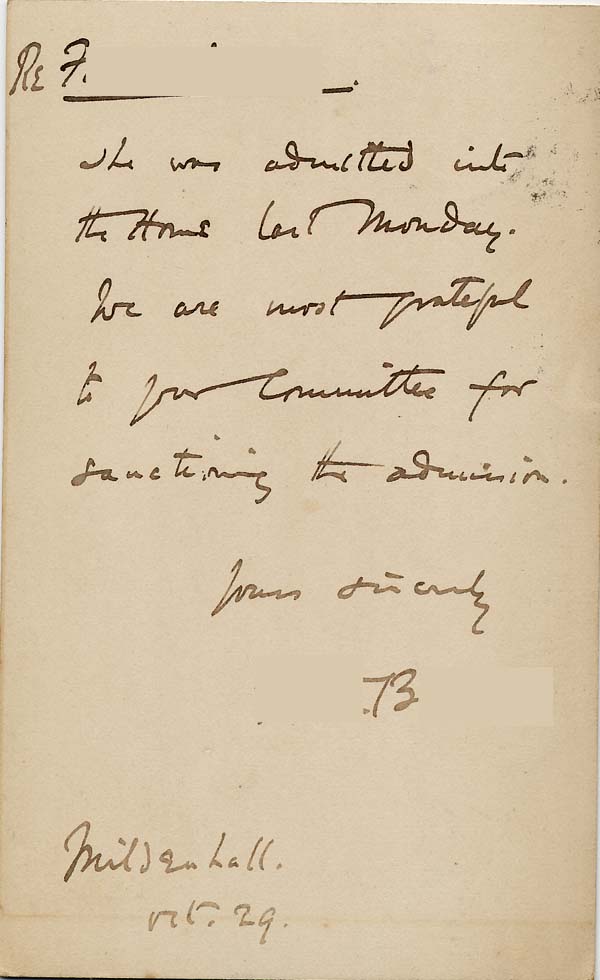 Re F.
She was admitted into
the Home last Monday.
We are most grateful
to your Committee for
sanctioning the admission.
Yours sincerely
B
Mildenhall.
Oct. 29.